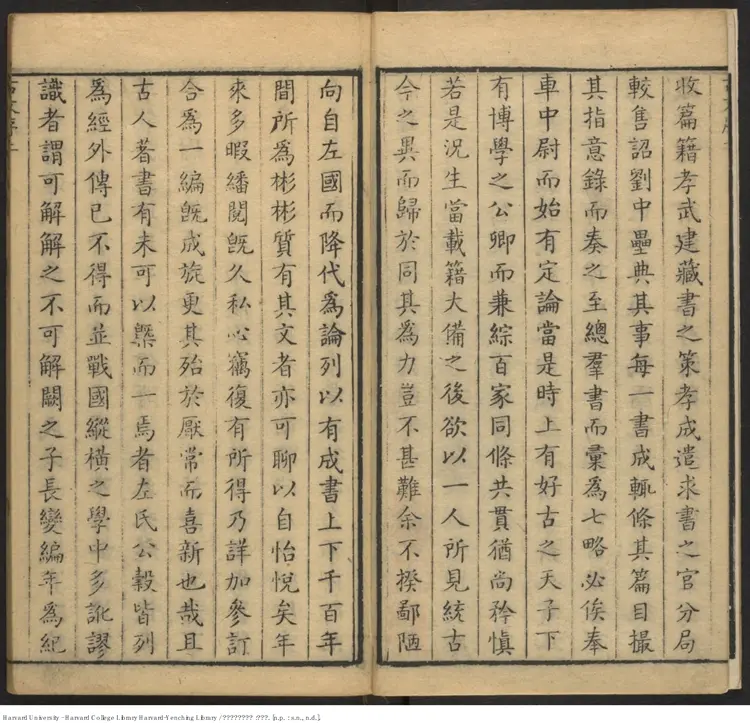 收篇籍孝武建藏書之策孝成遣求書之官分局
較售詔劉中壘典其事每一書成輒條其篇目撮
其指意錄而奏之至總羣書而彙爲七略必俟奉
車中尉而始有定論當是時上有好古之天子下
有博學之公卿而兼綜百家同條共貫猶尚矜愼
若是況生當載籍大備之後欲以一人所見統古
今之異而歸於同其爲力豈不甚難余不揆鄙陋
向自左國而降代爲論列以有成書上下千百年
間所爲彬彬質有其文者亦可聊以自怡悅矣年
來多暇繙閱旣久私心竊復有所得乃詳加參訂
合爲一編旣成旋更其殆於厭常而喜新也哉且
古人著書有未可以槩而一焉者左氏公穀皆列
爲經外傳已不得而並戰國縱橫之學中多訛謬
識者謂可解解之不可解闕之子長變編年爲紀
Harvard University - Harvard College Library Harvard-Yenching Library / ???????? :???. [n.p. : s.n., n.d.].